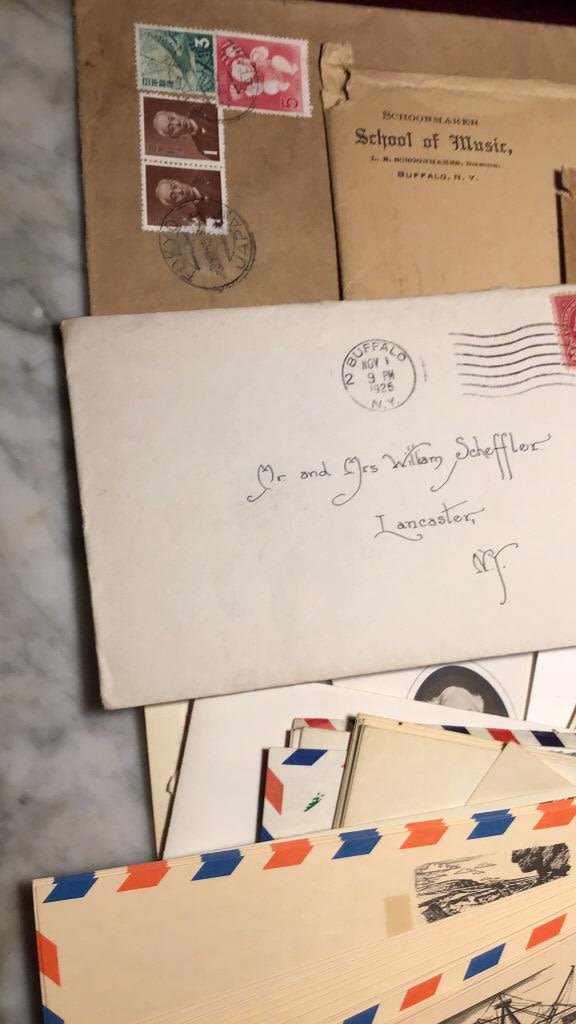 3
日本郵便
5
1
SCHOONMAKER
School of Music,
L. E. SCHOONMAKER, Director.
BUFFALO, N. Y.
TOKYO
JAPAN
BUFFALO
2
NOV 1
9 PM
1925
N.Y.
Mr. and Mrs William Scheffler.
Lancaster,
N.Y.